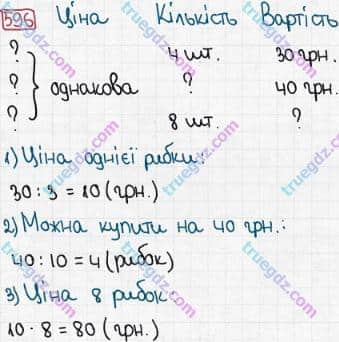 596 Ціна Кількість Вартість
? 4 шт. 30 грн.
? } однакова ? 40 грн.
? 8 шт. ?
1) Ціна однієї рибки:
30 : 3 = 10 (грн.)
2) Можна купити на 40 грн.:
40 : 10 = 4 (рибок)
3) Ціна 8 рибок
10 · 8 = 80 (грн.)
truegdz.com